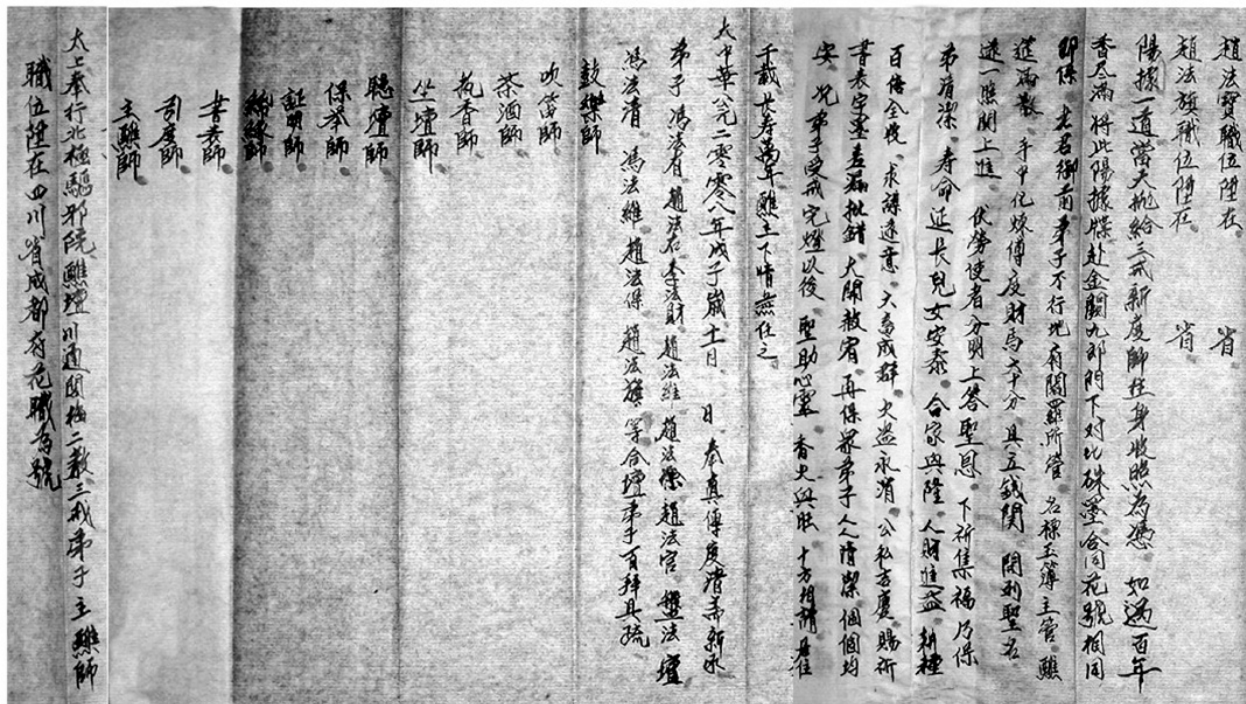 趙法寶職位陞在　省
趙法旗職位陞在　省
陽據一道當天批給三戒新度師在身收照為憑　如過百年
香尽滿將此陽據牒赴金闕九郎門下对比硃墨合同花號相同
即係　老君御前弟子不行地府閻羅所管　名標玉簿主管　醮
筵滿散　手中化煉傅度財馬六十分　具五錢関　開列聖名
逐一照関上進　伏勞使者分明上答聖恩　下祈集福乃保
弟清潔　寿命延長兒女安泰　合家興隆　人財進益　耕種
百倍全收　求謀遂意　六畜成群　火盗永消　公私吉慶　賜祈
書表字墨差漏批錯　大開赦宥　再保眾弟子人人清潔　個個均
安　弟子受戒完燈以後　聖助心靈　香火興旺　十方相請
千載　共寿萬年醮主下情無任之
大中華公元二零零八年戊子歲十一日　日　奉真傅度清斋新承
弟子　馮法有　趙法石　李法財　趙法維　趙法　趙法官　盤法
馮法清　馮法維　趙法保　趙法旗　等合壇弟子百拜具疏
鼓樂師
吹笛師
茶酒師
执香師
坐壇師
聪壇師
保奉師
証明師
総縁師
書表師
引度師
主醮師
太上奉行北極驅邪院醮壇川通閭梅二教三戒弟子主醮師
職位陞在四川省成都府花職為號